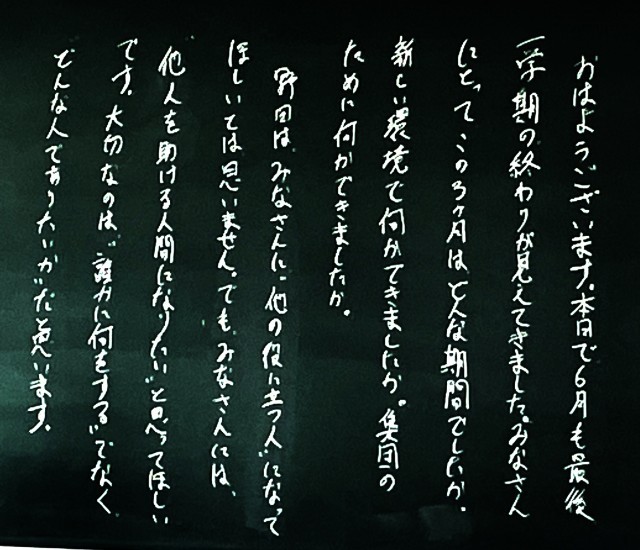 おはようございます。本日で6月も最後
一学期の終わりが見えてきました。みなさん
にとってこの3ヶ月はどんな期間でしたか。
新しい環境で何ができましたか。集団の
ために何ができましたか。
野田は、みなさんに“他の役に立つ人”になって
ほしいとは思いません。でも、みなさんには、
“他人を助ける人間になりたい”と思ってほしい
です。大切なのは、“誰かに何をする”でなく
“どんな人でありたいか”だと思います。